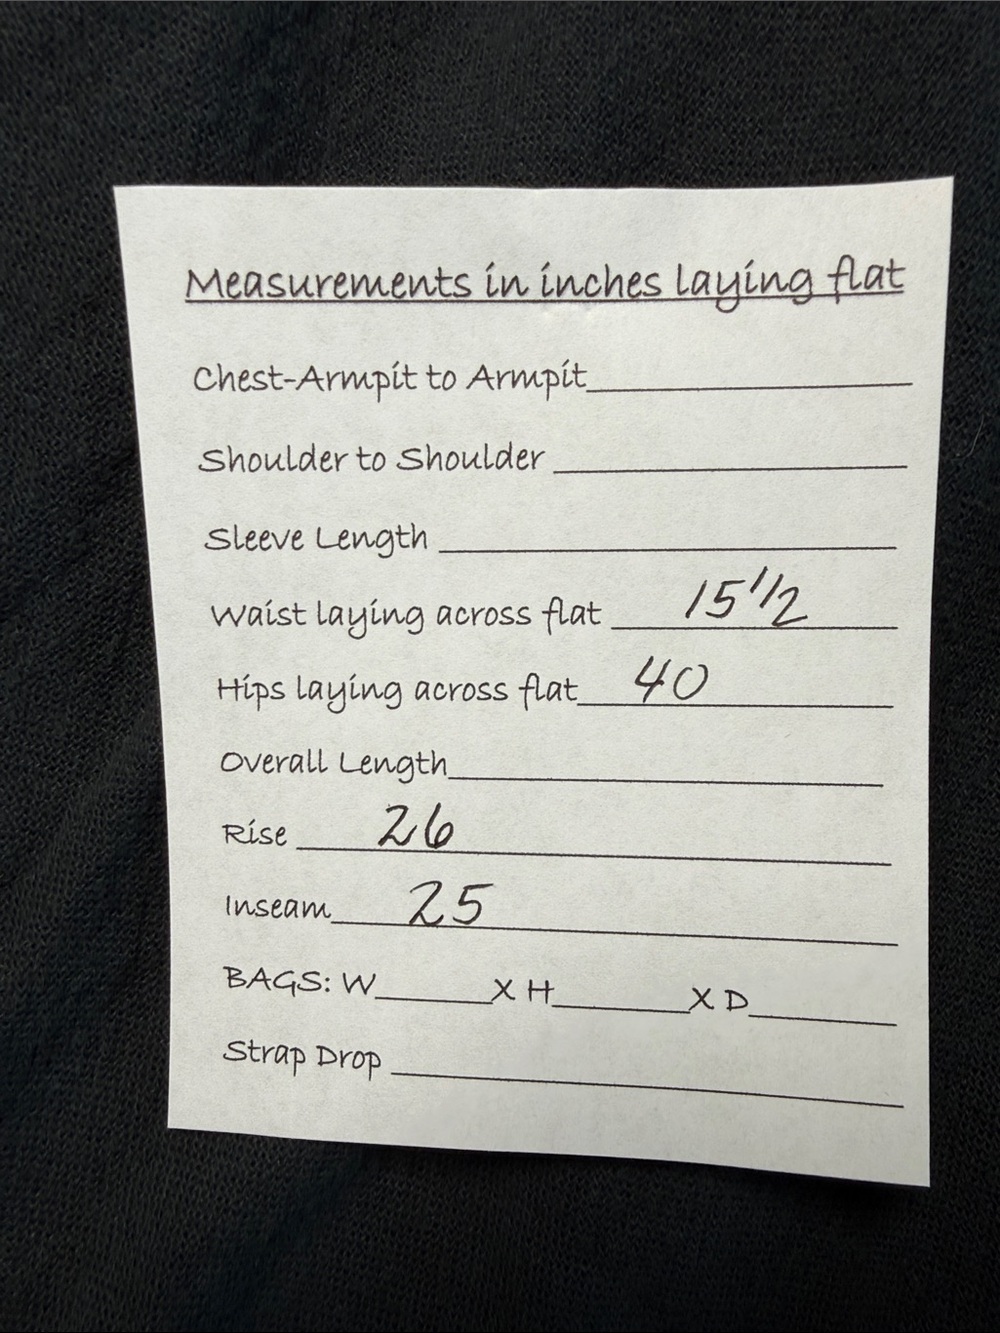 Measurements in inches laying flat
Chest-Armpit to Armpit
Shoulder to Shoulder
Sleeve Length
Waist laying across flat 15 1/2
Hips laying across flat 40
Overall Length
Rise 26
Inseam 25
BAGS: W X H X D
Strap Drop